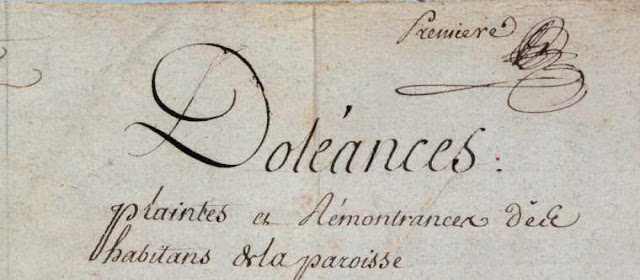 Premiere
Doléances.
plaintes et Rémontrances des
habitans de la paroisse